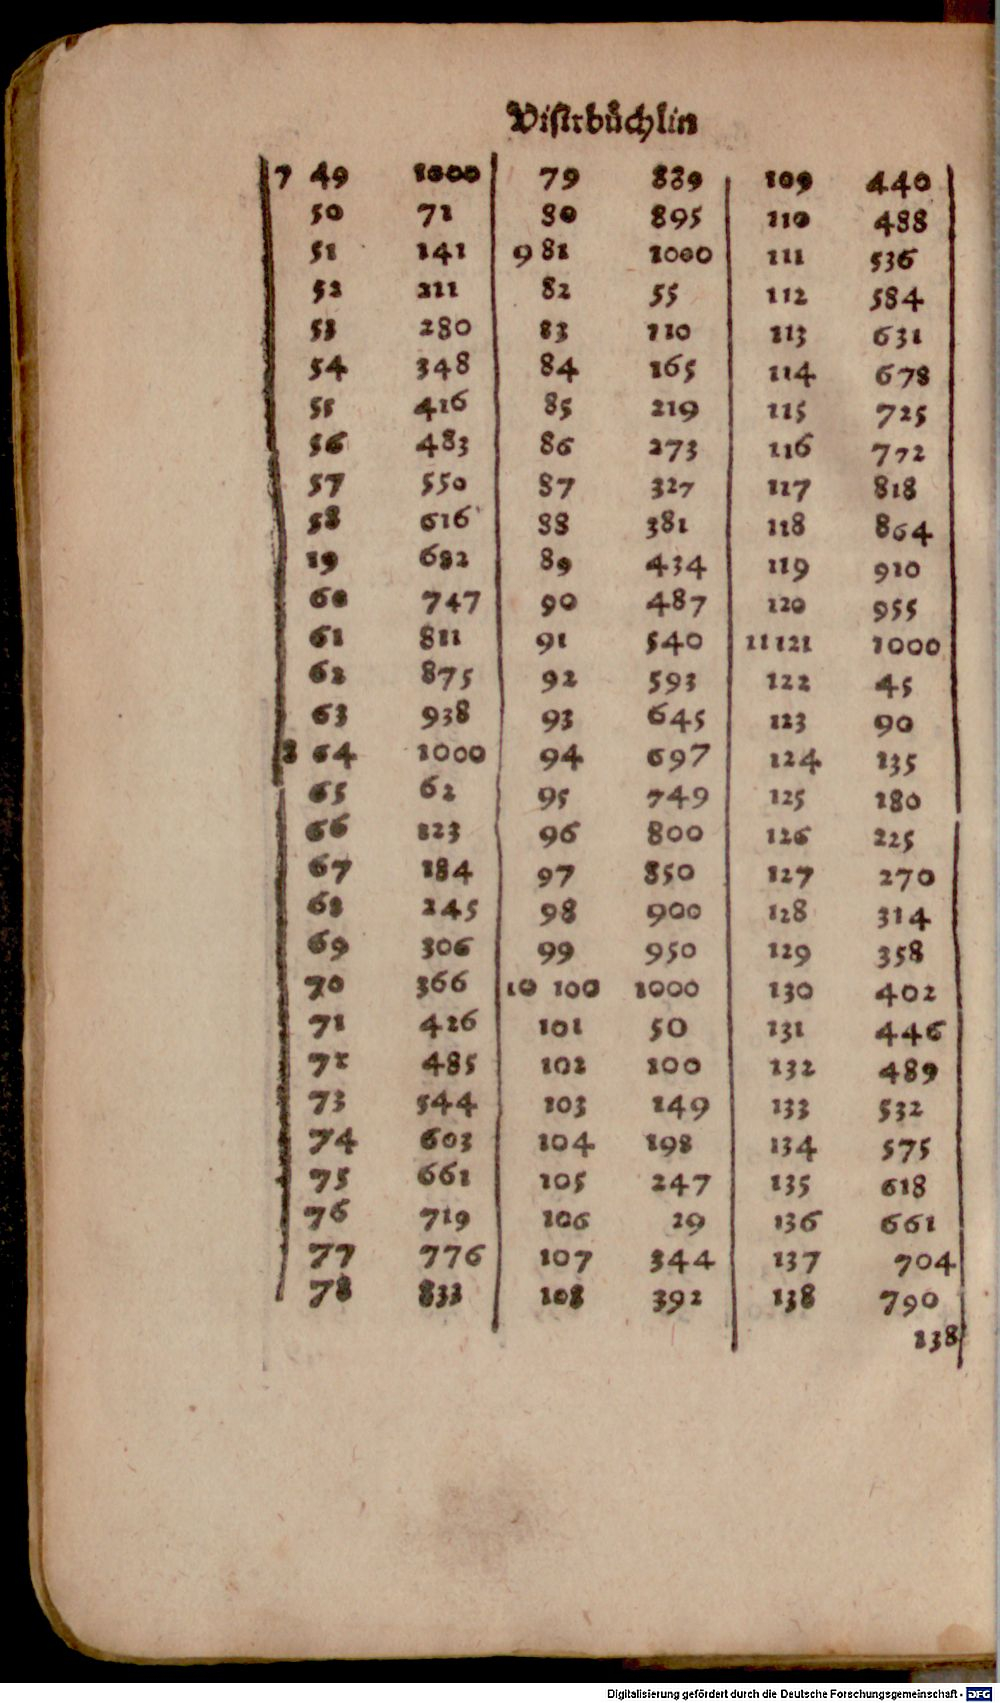 Visirbůchlin
7 49 1000 79 889 109 440
50 71 80 895 110 488
51 141 9 81 1000 111 536
52 211 82 55 112 584
53 280 83 110 113 631
54 348 84 165 114 678
55 416 85 219 115 725
56 483 86 273 116 772
57 550 87 327 117 818
58 616 88 381 118 864
19 682 89 434 119 910
60 747 90 487 120 955
61 811 91 540 11 121 1000
62 875 92 593 122 45
63 938 93 645 123 90
8 64 1000 94 697 124 135
65 62 95 749 125 180
66 123 96 800 126 225
67 184 97 850 127 270
68 245 98 900 128 314
69 306 99 950 129 358
70 366 10 100 1000 130 402
71 426 101 50 131 446
72 485 102 100 132 489
73 544 103 149 133 532
74 603 104 198 134 575
75 661 105 247 135 618
76 719 106 29 136 661
77 776 107 344 137 704
78 833 108 392 138 790
138
Digitalisierung gefördert durch die Deutsche Forschungsgemeinschaft - DFG